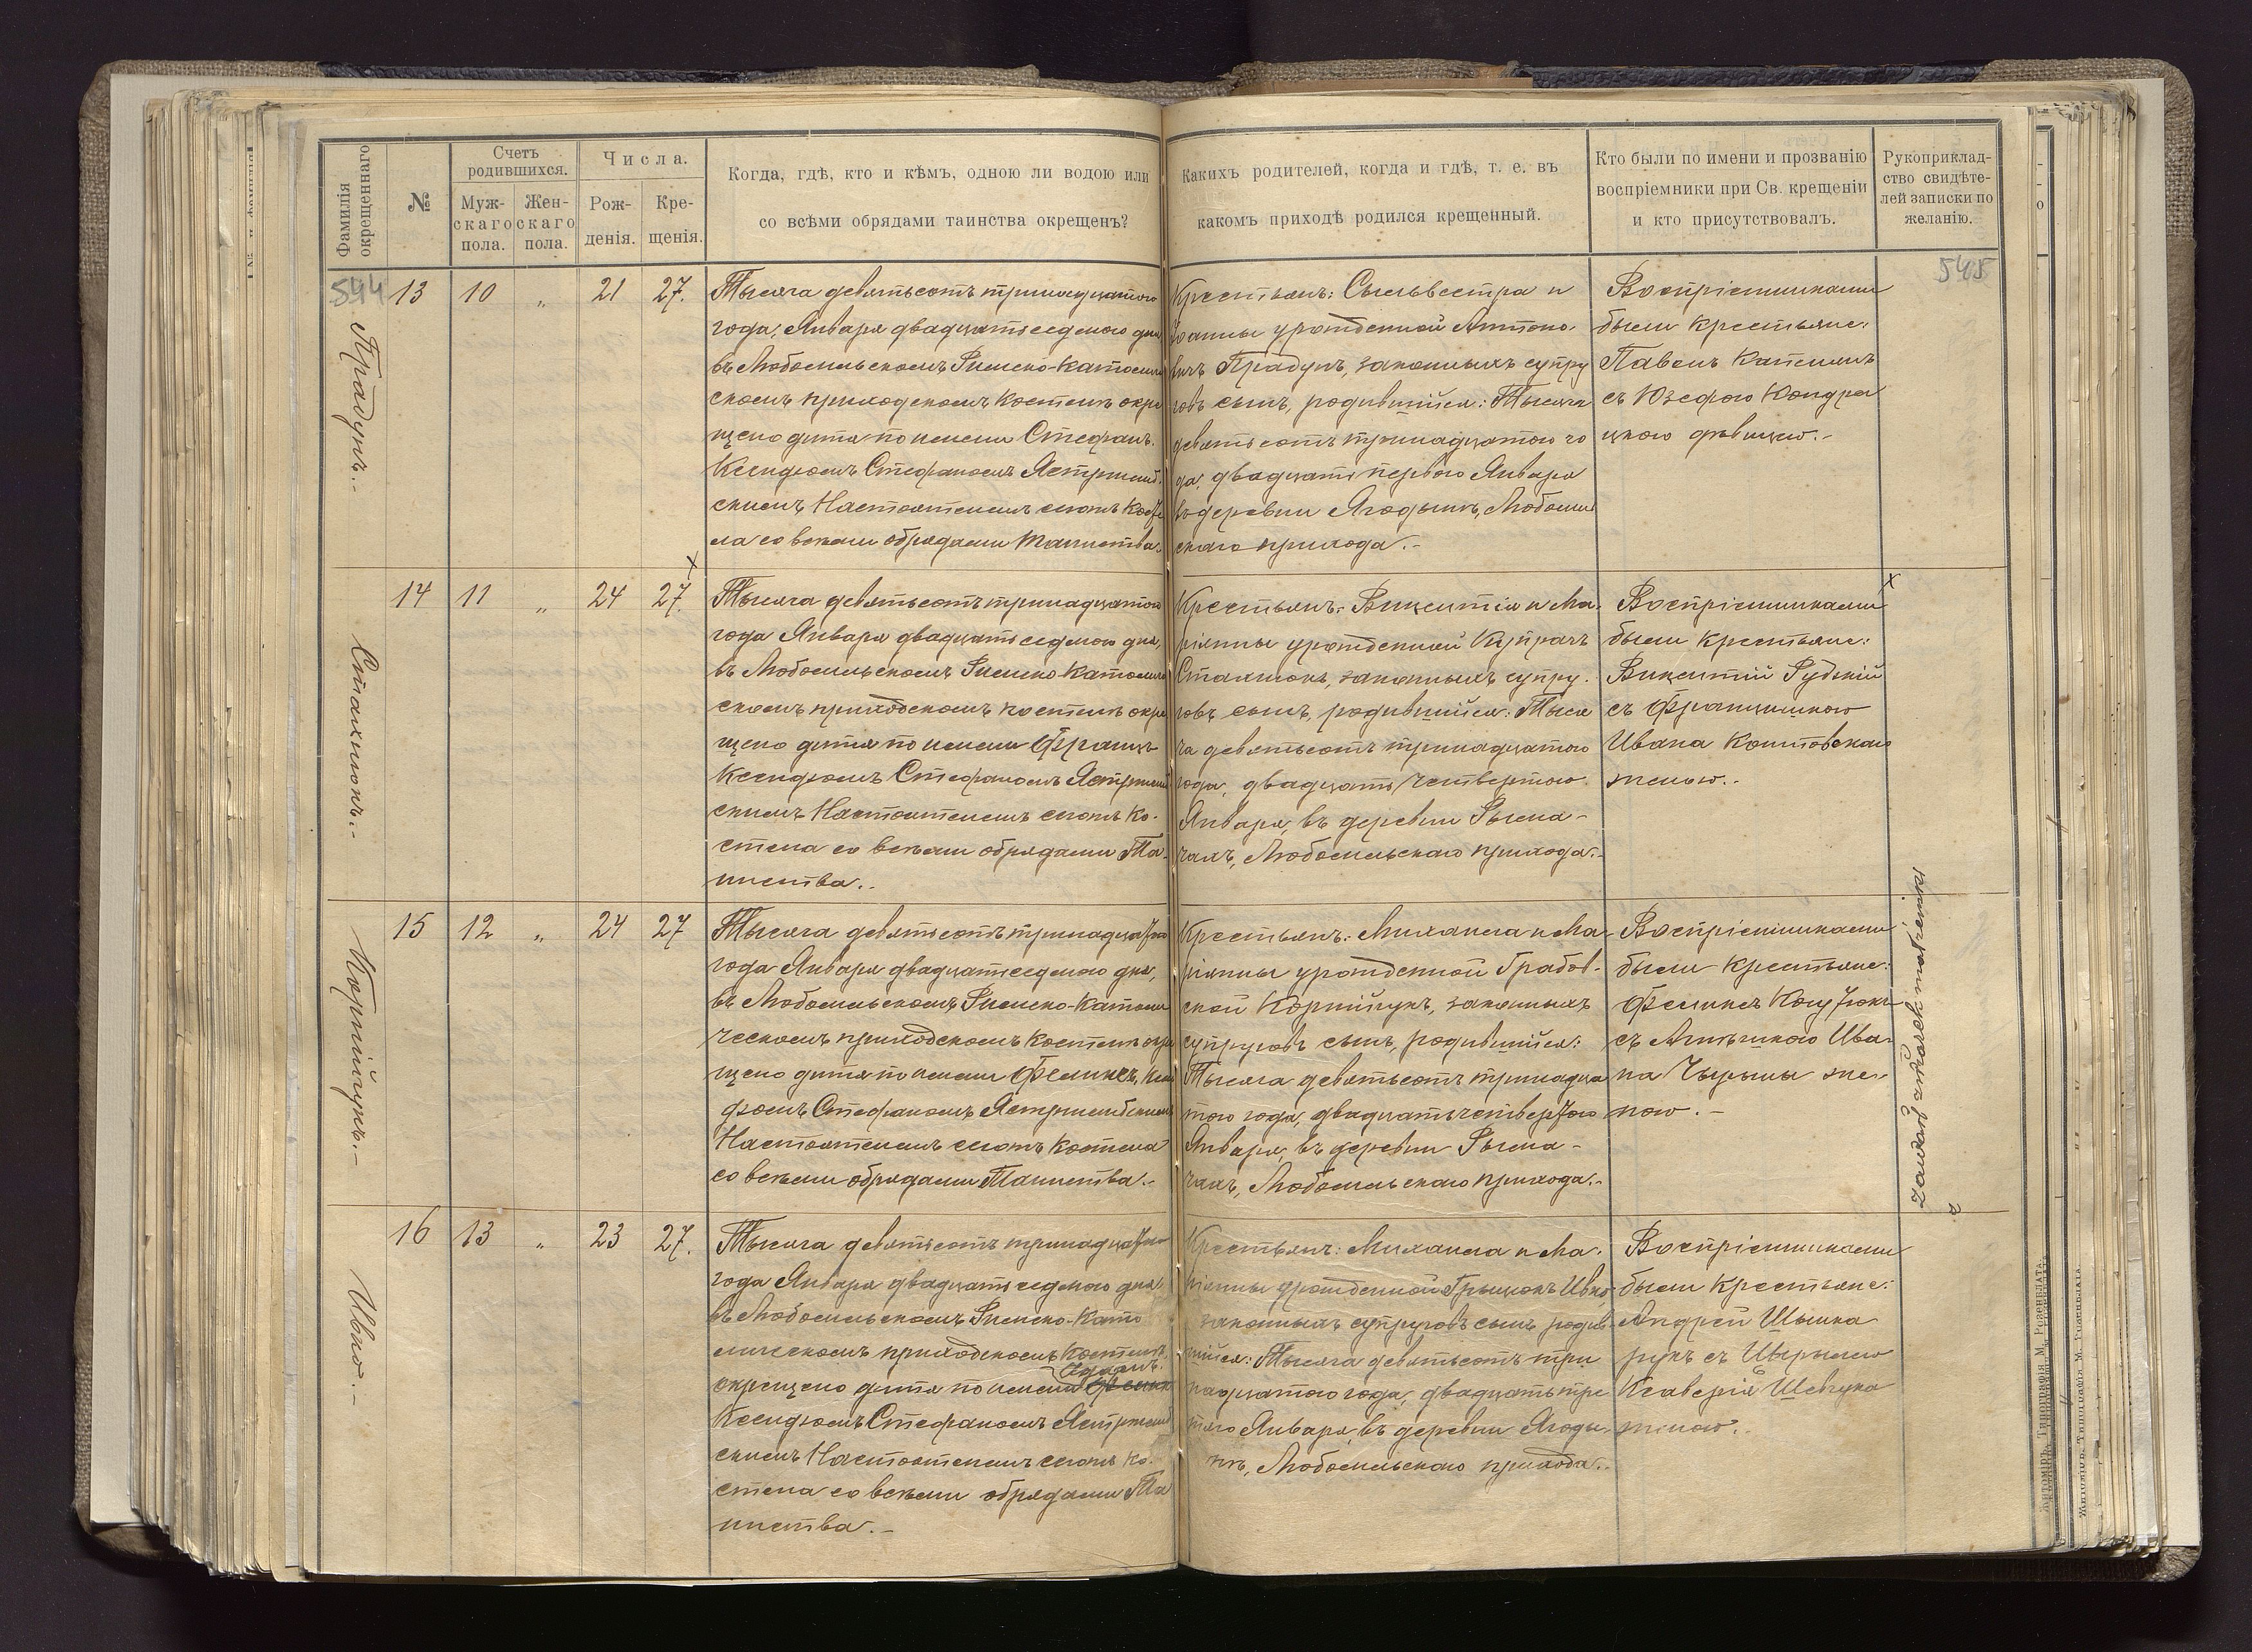 Фамилія окрещеннаго
№
Счетъ родившихся.
Мужскаго пола.
Женскаго пола.
Числа.
Рожденія.
Крещенія.
Когда, гдѣ, кто и кѣмъ, одною ли водою или
со всѣми обрядами таинства окрещенъ?
Какихъ родителей, когда и гдѣ, т. е. въ
какомъ приходѣ родился крещенный.
Кто были по имени и прозванію
воспріемники при Св. крещеніи
и кто присутствовалъ.
Рукоприклад-
ство свидѣте-
лей записки по
желанію.
544
545
Прадунъ.-
13 10 " 21 27.
Тысяча девятьсотъ тринадцатого
года, Января двадцатьседмого дня
въ Любомльскомъ Римско-Католиче
скомъ приходскомъ Костелѣ окре
щено дитя по имени Стефанъ.
Ксендзомъ Стефаномъ Ястржемб.
скимъ Настоятелемъ сего Косте
ла со всѣми обрядами Таинства.
Крестьянъ: Сыльвестра и
Іоанны урожденной Антоно.
вичъ Прадунъ, законныхъ супру
говъ сынъ, родившійся: Тысяча
девятьсотъ тринадцатого го
да, двадцать перваго Января
въ деревни Ягодынъ, Любомль
скаго прихода.-
Воспріемниками
были Крестьяне:
Павелъ
съ Юзефою Кондра
цкою дѣвицею.-
Стахнюкъ.-
14 11 " 24 27.
Тысяча девятьсотъ тринадцатого
года Января двадцатьседмого дня,
въ Любомльскомъ Римско-Католиче
скомъ приходскомъ костелѣ окре
щено дитя по имени Францъ
Ксендзомъ Стефаномъ Ястржемб
скимъ Настоятелемъ сего Ко.
стела со всѣми обрядами Та.
инства..
Крестьянъ: Викентія и Ма.
ріянны урожденной Купрачъ
Стахнюкъ, законныхъ супру.
говъ сынъ, родившійся: Тыся
ча девятьсотъ тринадцатого
года, двадцать четвертого
Января, въ деревни Рыма-
чахъ, Любомльскаго прихода.-
Воспріемниками
были Крестьяне:
Викентій Рудскій
съ Францишкою
Ивана
женою.-
Корнійчукъ.-
15 12 " 24 27
Тысяча девятьсотъ тринадцатого
года Января двадцатьседмого дня,
въ Любомльскомъ Римско-Католи
ческомъ приходскомъ Костелѣ окре
щено дитя по имени Феликсъ, Ксен
дзомъ Стефаномъ Ястржембскимъ
Настоятелемъ сего Костела
со всѣми обрядами Таинства.-
Крестьянъ: Михаила и Ма-
ріянны урожденной Грабов-
ской Корнійчукъ, законныхъ
супруговъ сынъ, родившійся:
Тысяча девятьсотъ тринадца
того года, двадцатьчетвертого
Января, въ деревни Рыма-
чахъ, Любомльскаго прихода.-
Воспріемниками
были Крестьяне:
Феликсъ
съ Ива-
на же-
ною.-
Ивко.-
16 13 " 23 27.
Тысяча девятьсотъ тринадцатого
года Января двадцатьседмого дня
въ Любомльскомъ Римско-Като
лическомъ приходскомъ Костелѣ,
Адамъ.
окрещено дитя по имени
Ксендзомъ Стефаномъ Ястржемб
скимъ Настоятелемъ сего Ко.
стела со всѣми обрядами Та
инства.-
Крестьянъ: Михаила и Ма.
ріянны урожденной Грыцюкъ Ивко,
законныхъ супруговъ сынъ родив-
шійся: Тысяча девятьсотъ три
надцатого года, двадцатьтре
тяго Января, въ деревни Ягоды-
нѣ, Любомльскаго прихода..
Воспріемниками
были Крестьяне:
Андрей
съ
Ксаверія Шевчука
женою.
Житоміръ, Типографія М. Розенблата.